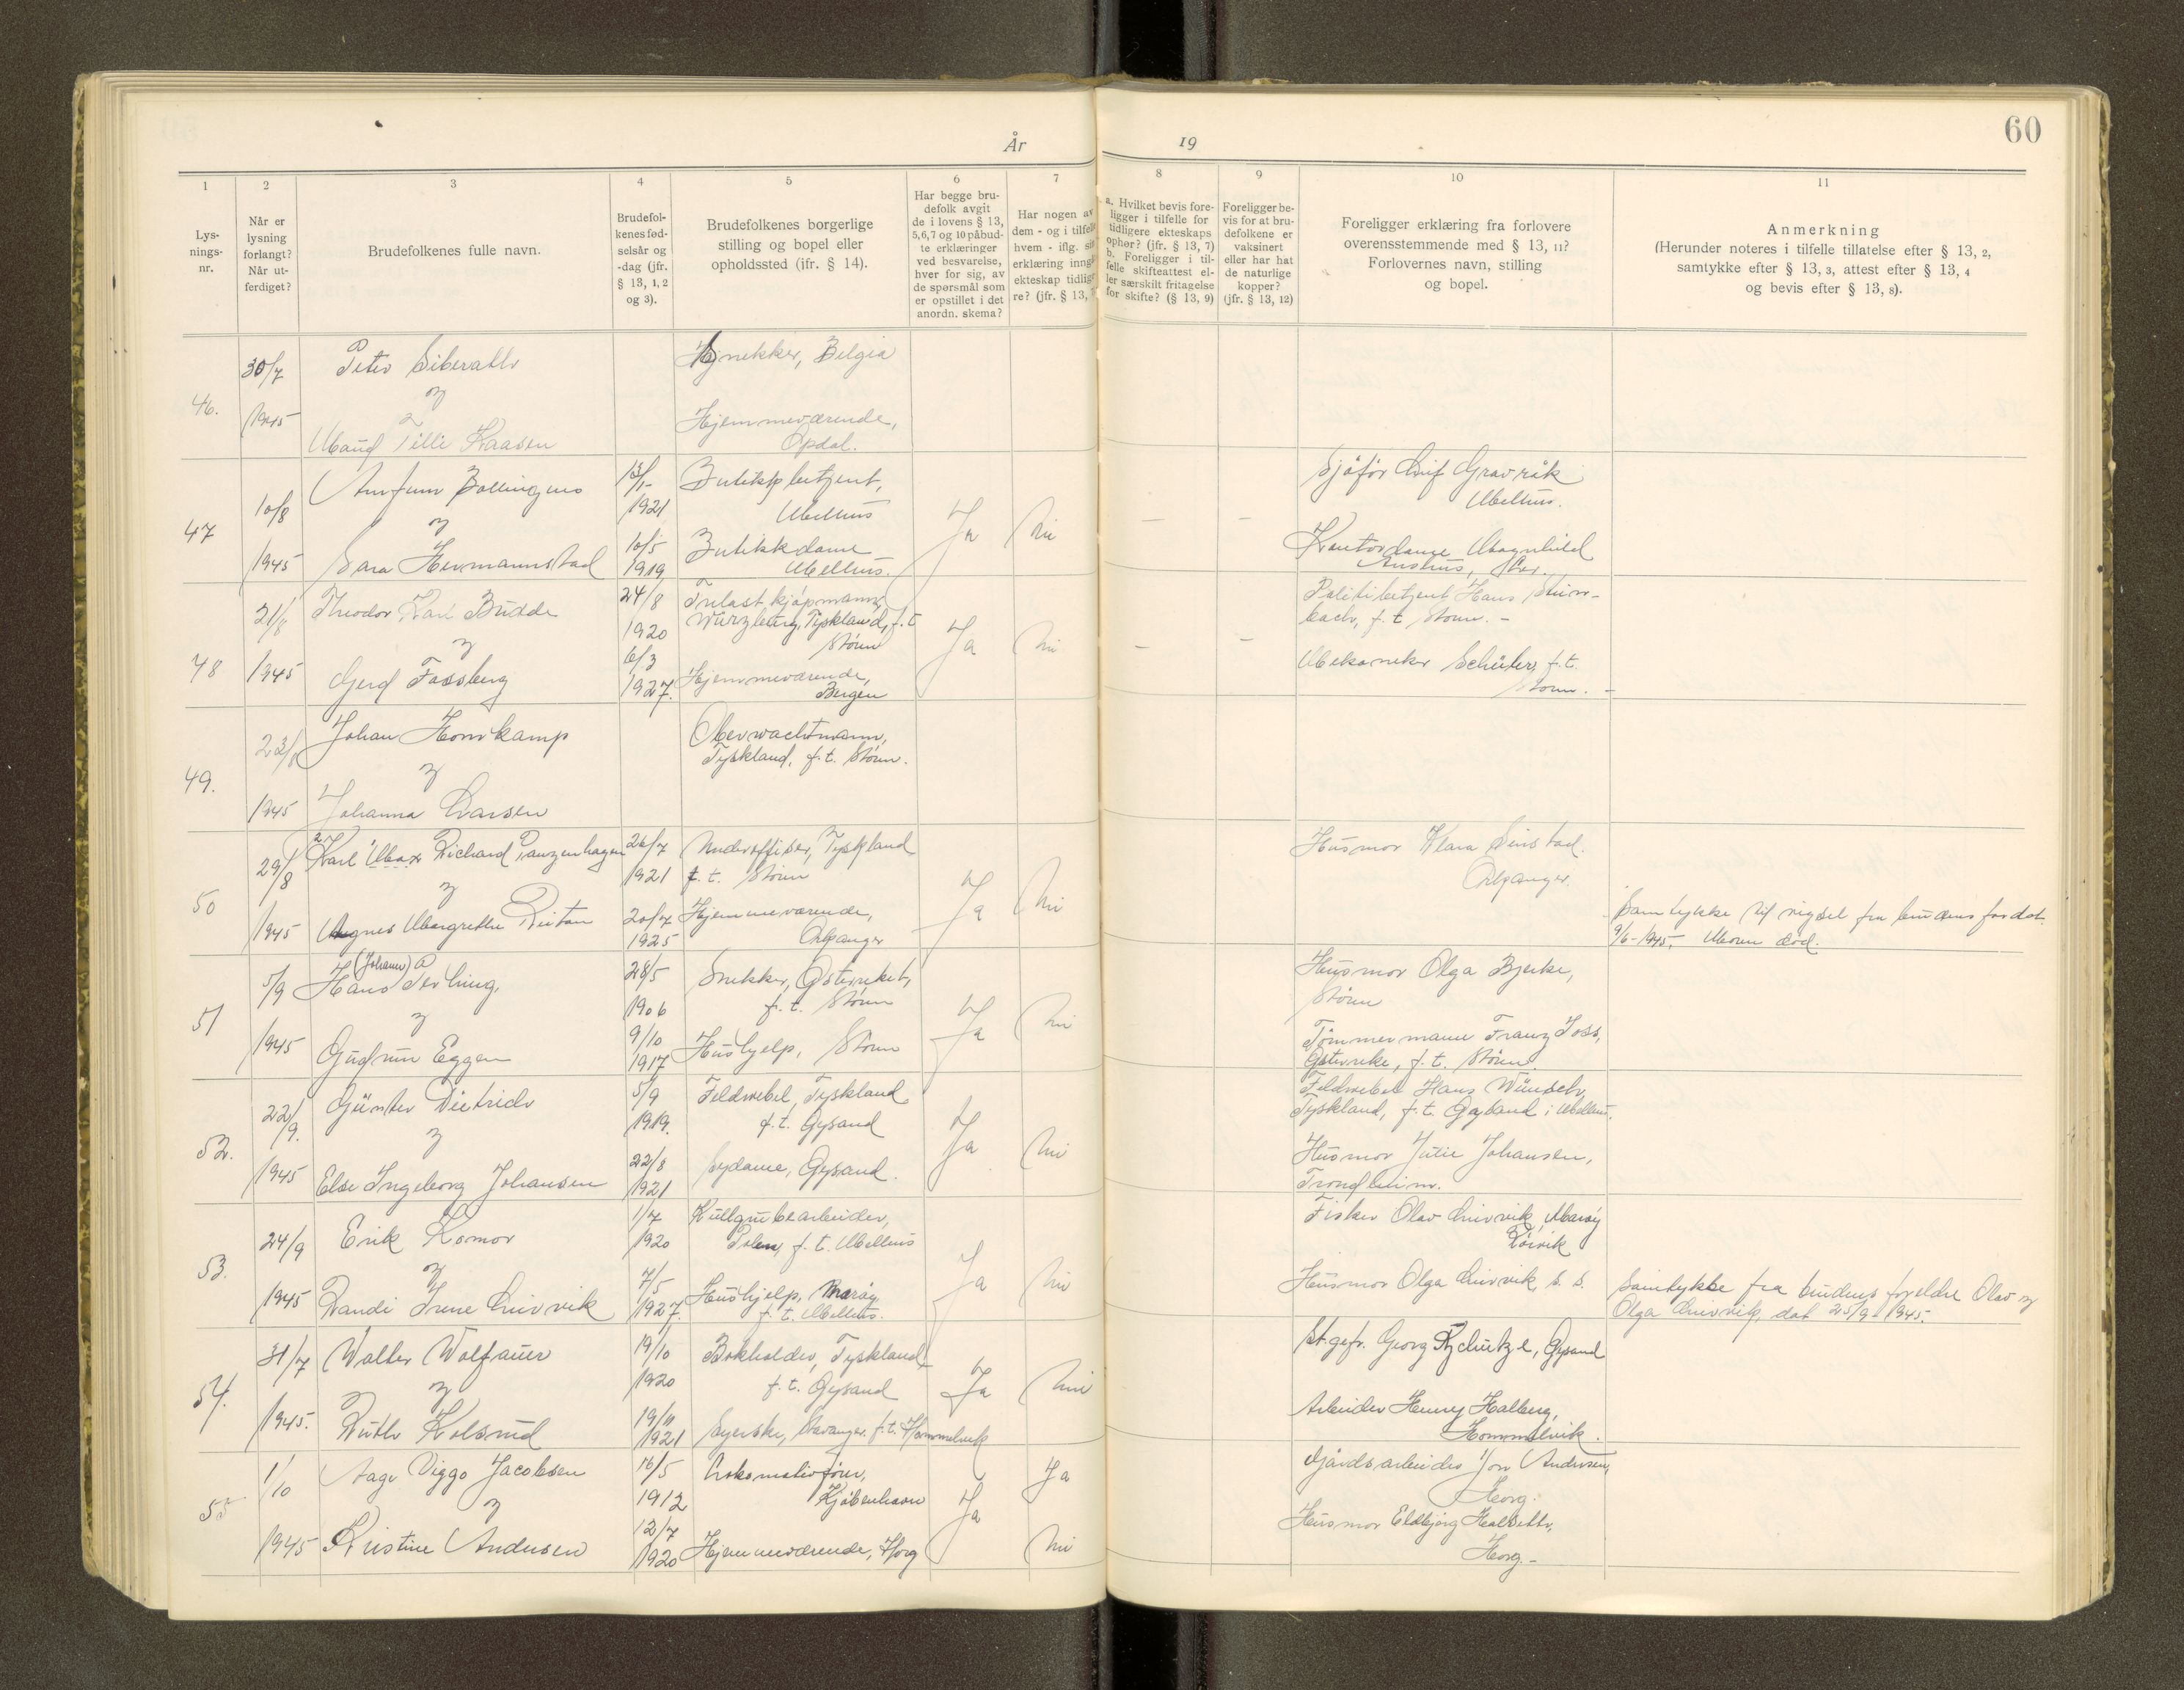 60
År
19
1
2
3
4
5
6
7
8
9
10
11
Lys-
nings-
nr.
Når er
lysning
forlangt?
Når ut-
ferdiget?
Brudefolkenes fulle navn.
Brudefol-
kenes fød-
selsår og
-dag (jfr.
§ 13, 1, 2
og 3).
Brudefolkenes borgerlige
stilling og bopel eller
opholdssted (ifr. § 14).
Har begge bru-
defolk avgit
de i lovens § 13,
5,6,7 og 10 påbud-
te erklæringer
ved besvarelse,
hver for sig, av
de spørsmål som
er opstillet i det
anordn. skema?
Har nogen av
dem - og i tilfelle
hvem - iflg. sin
erklæring inngå
ekteskap tidlig
re? (jfr. § 13, 7
a. Hvilket bevis fore-
ligger i tilfelle for
tidligere ekteskaps
ophør? (jfr. § 13, 7)
b. Foreligger i til-
felle skifteattest el-
ler særskilt fritagelse
for skifte? (§ 13, 9)
Foreligger be-
vis for at bru-
defolkene er
vaksinert
eller har hat
de naturlige
kopper?
(jfr. § 13, 12)
Foreligger erklæring fra forlovere
overensstemmende med § 13, 11?
Forlovernes navn, stilling
og bopel.
Anmerkning
(Herunder noteres i tilfelle tillatelse efter § 13, 2,
samtykke efter § 13, 3, attest efter § 13, 4
og bevis efter § 13, 8).
46.
30/7
1945
Peter
og
Maud Tilli Kaasen
Snekker, Belgia
Hjemmeværende,
Opdal.
47
10/8
1945
Arnfinn Bollingmo
og
Sara Hermannstad
13/1-
1921
10/5
1919
Butikkbetjent,
Melhus
Butikkdame
Melhus.
Ja
Nei
-
-
Sjåfør Leif Gravråk
Melhus.
Kontordame Magnhild
48
21/8
1945
Theodor Karl Budde
og
Gerd Fossberg
24/8
1920
6/3
1927.
Trelastkjøpmann,
Würzburg, Tyskland, f.t
Støren
Hjemmeværende,
Bergen
Ja
Nei
-
-
Politibetjent Hans Stein-
bach, f. t Støren. -
Mekaniker Schüler, f.t.
Støren. -
49.
23/8
1945
Johan Homkamp
og
Johanna Larsen
Oberwachtmann,
Tyskland, f. t. Støren.
50
29/8
1945
Karl Max Richard Panzenhagen
og
Agnes Margrethe Reitan
26/7
1921
20/7
1925
Underoffiser, Tyskland
f. t. Støren
Hjemmeværende,
Orkanger
Ja
Nei
Husmor Klara Leinstad.
Orkanger.
Samtykke til vigsel fra brudens far dat.
9/6-1945. Moren død.
51
5/9
1945
(Johann)
Hans Perling,
og
Gudrun Eggen
28/5
1906
9/10
1917
Snekker, Østerriket,
f. t. Støren
Hushjelp, Støren
Ja
Nei
Husmor Olga Bjerke,
Støren
Tømmermann Franz Joss,
Østerrike, f. t. Støren.
52.
22/9.
1945
Günter Dietrich
og
Else Ingeborg Johansen
5/9
1919.
22/8
1921
Feldwebel, Tyskland
f.t. Øysand
Sydame, Øysand.
Ja
Nei
Feldwebel Hans Wünsch,
Tyskland, f. t. Øysand i Melhus.
Husmor Jutie Johansen,
Trondheim.
53.
24/9
1945
Erik Komor
og
Randi Irene Leirvik
1/7
1920
7/5
1927.
Kullgrubearbeider,
Polen, f. t. Melhus
Hushjelp, Marøy
f. t. Melhus.
Ja
Nei
Fisker Olav Leirvik, Marøy
Rørvik
Husmor Olga Leirvik, s. s.
Samtykke fra brudens foreldre Olav og
Olga Leirvik, dat 25/9 1945.
54.
31/7
1945.
Walter Wolfauer
og
Ruth Kolsrud
19/10
1920
19/11
1921
Bokholder, Tyskland
f. t. Øysand
Syerske, Stavanger f. t. Hommelvik
Ja
Nei
St.gefr. Georg, Øysand
Arbeider Henry Halberg,
Hommelvik.
55
1/10
1945
Aage Viggo Jacobsen
og
Kristine Andersen
16/5
1912
12/7
1920
Lokomotivfører,
Kjøbenhavn
Hjemmeværende, Horg
Ja
Ja
Nei
Gårdsarbeider Jon Andersen,
Horg.
Husmor Eldbjørg Halseth,
Horg. -